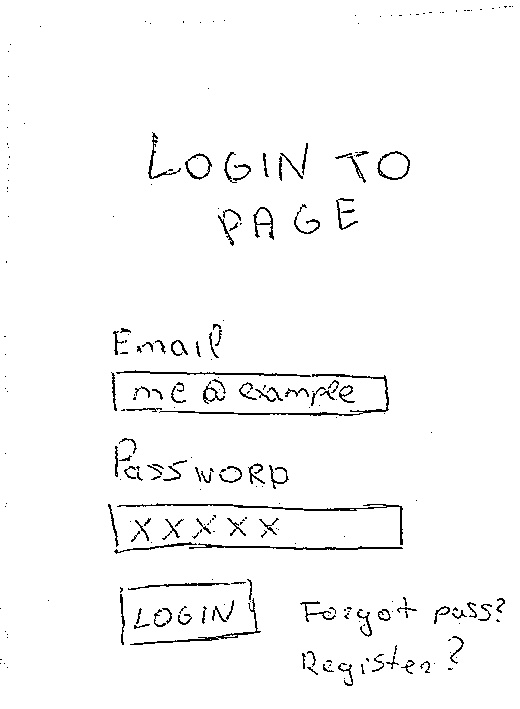 LOGIN TO
PAGE
Email
me@example
Password
XXXXX
LOGIN
Forgot pass?
Register?